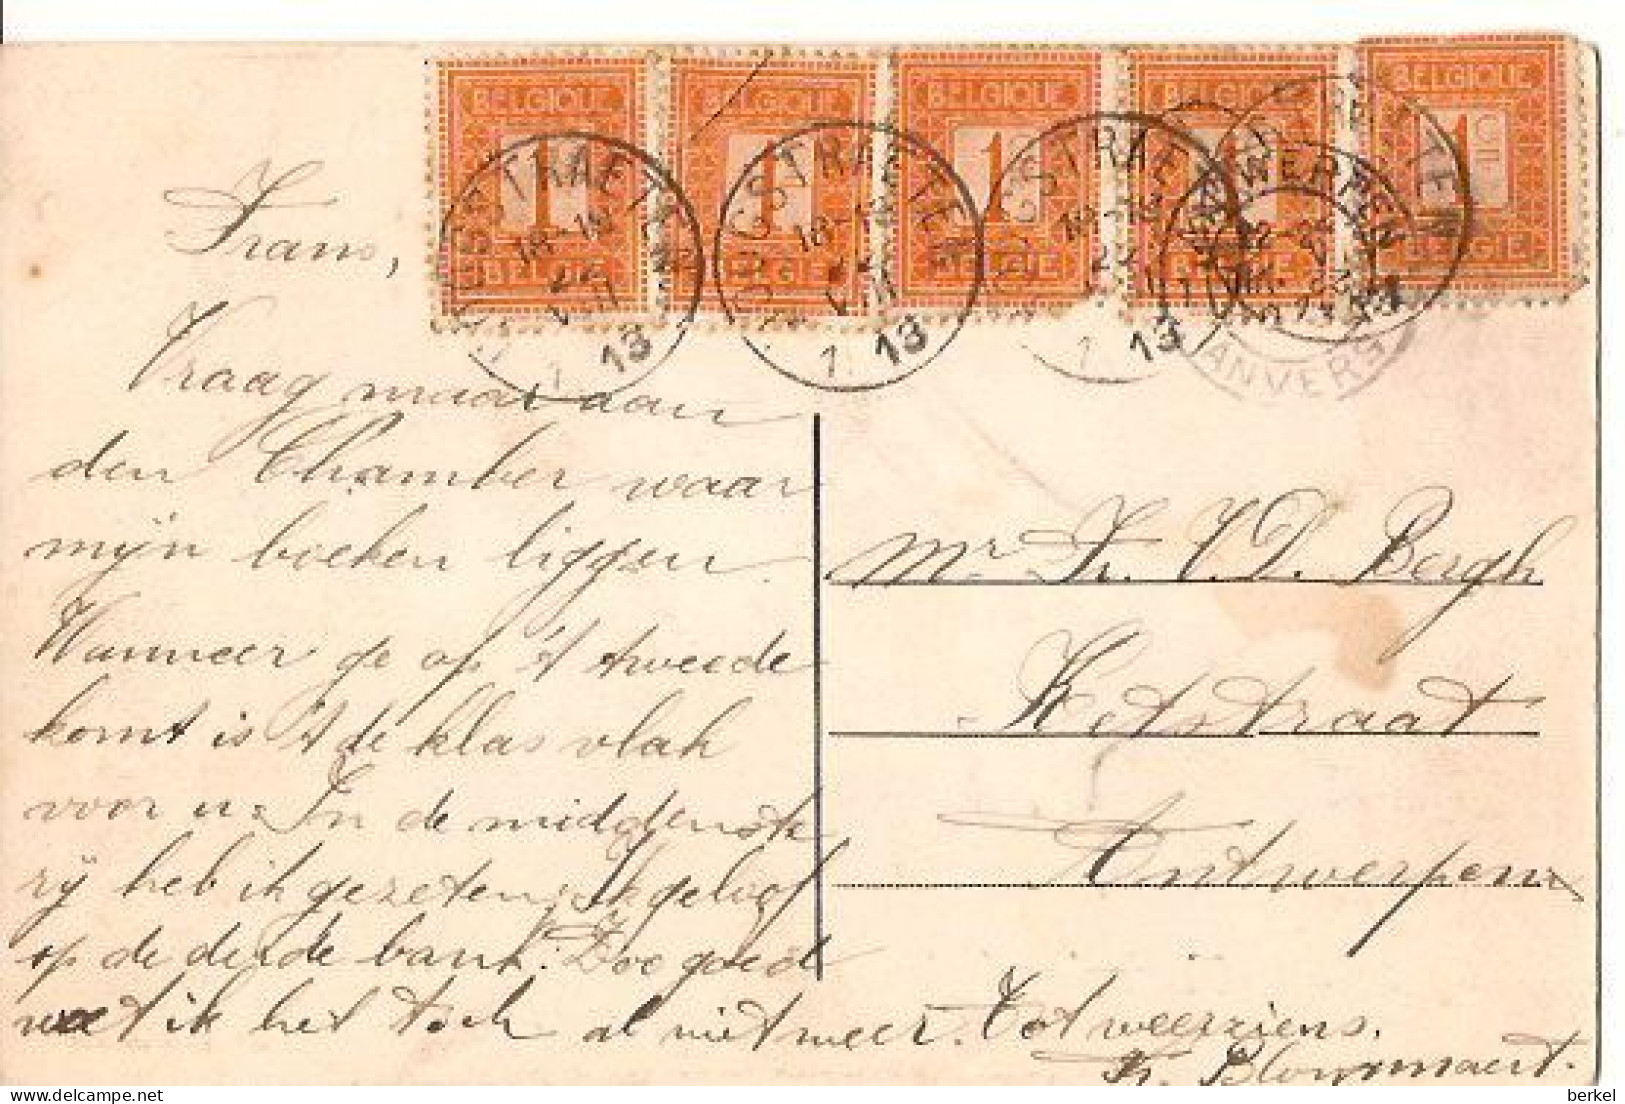 BELGIQUE BELGIQUE BELGIQUE BELGIQUE BELGIQUE
1 1 1 1 1
BELGIE BELGIE BELGIE BELGIE BELGIE
13 13 13
ANTWERPEN
ANVERS
Frans,
Vraag maar aan
den Chamber waar
mijn boeken liggen.
Wanneer ge op 't tweede
komt is 't de klas vlak
voor u. In de middenste
rij heb ik gezeten, ik geloof
op de derde bank. Zoo goed
weet ik het toch al niet meer. Tot weerziens.
Fr. Blommaert.
Mr Fr. V. D. Bergh
Ketstraat
Antwerpen
berkel